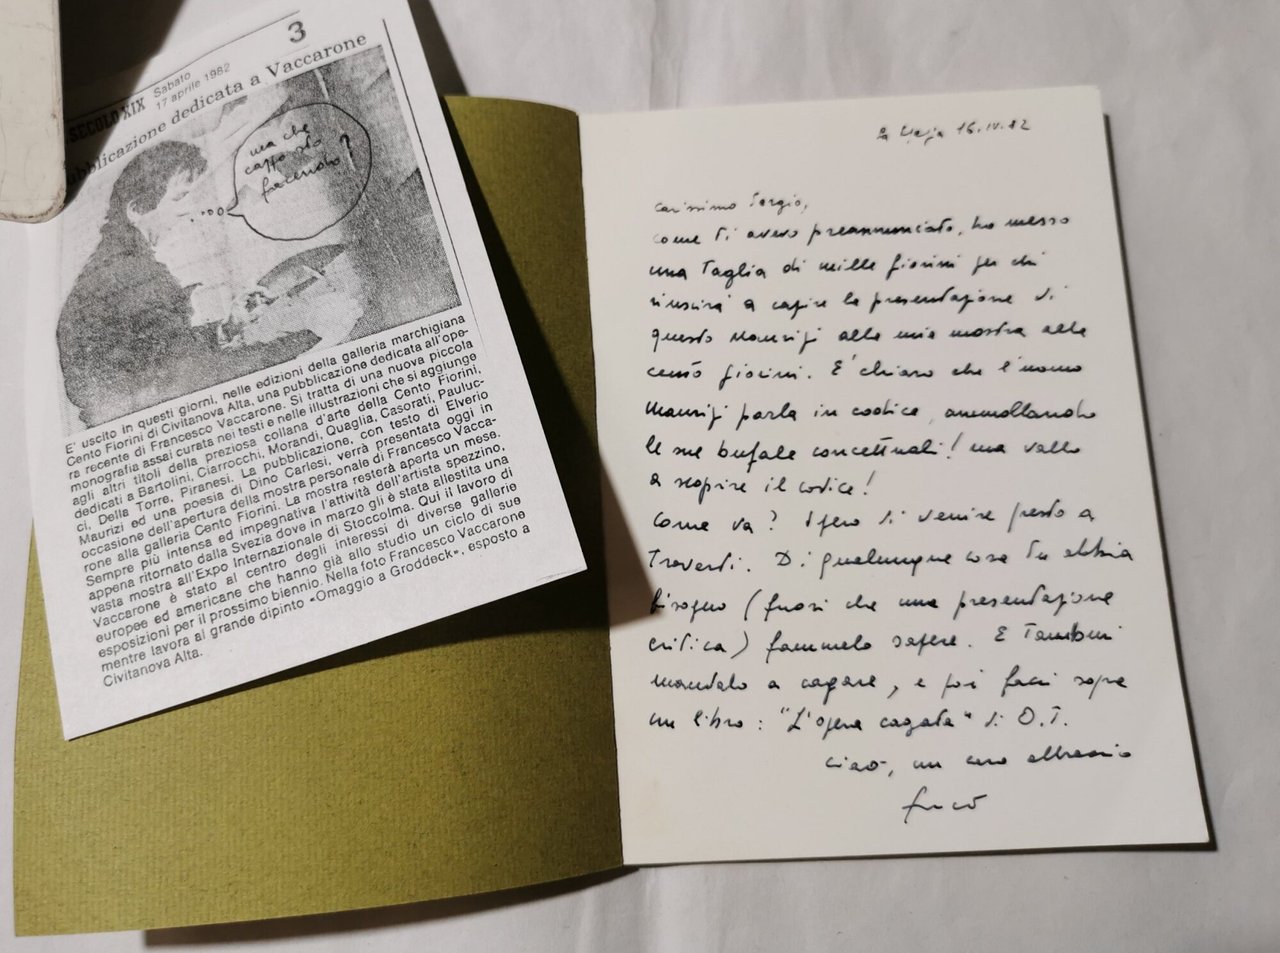 3
SECOLO XIX Sabato
17 aprile 1982
bblicazione dedicata a Vaccarone
ma che
cappo sto
facendo?
E' uscito in questi giorni, nelle edizioni della galleria marchigiana
Cento Fiorini di Civitanova Alta, una pubblicazione dedicata all'ope-
ra recente di Francesco Vaccarone. Si tratta di una nuova piccola
monografia assai curata nei testi e nelle illustrazioni che si aggiunge
agli altri titoli della preziosa collana d'arte della Cento Fiorini,
dedicati a Bartolini, Ciarrocchi, Morandi, Quaglia, Casorati, Pauluc-
ci, Della Torre, Piranesi. La pubblicazione, con testo di Elverio
Maurizi ed una poesia di Dino Carlesi, verrà presentata oggi in
occasione dell'apertura della mostra personale di Francesco Vacca-
rone alla galleria Cento Fiorini. La mostra resterà aperta un mese.
Sempre più intensa ed impegnativa l'attività dell'artista spezzino,
appena ritornato dalla Svezia dove in marzo gli è stata allestita una
vasta mostra all'Expo Internazionale di Stoccolma. Qui il lavoro di
Vaccarone è stato al centro degli interessi di diverse gallerie
europee ed americane che hanno già allo studio un ciclo di sue
esposizioni per il prossimo biennio. Nella foto Francesco Vaccarone
mentre lavora al grande dipinto «Omaggio a Groddeck», esposto a
Civitanova Alta.
16.IV.82
carissimo Sergio,
come ti avevo preannunciato, ho messo
una taglia di mille fiorini per chi
riuscirà a capire la presentazione di
questo Maurizi alla mia mostra alla
cento fiorini. E' chiaro che l'uomo
Maurizi parla in codice, ammollando
le sue bufale concettuali! ma vallo
a scoprire il codice!
come va? Spero di venire presto a
trovarti. Di qualunque cosa tu abbia
bisogno (fuori che una presentazione
critica) fammelo sapere. E Tambini
mandalo a cagare, e poi facci sopra
un libro: "L'opera cagata" di O.T.
ciao, un caro abbraccio